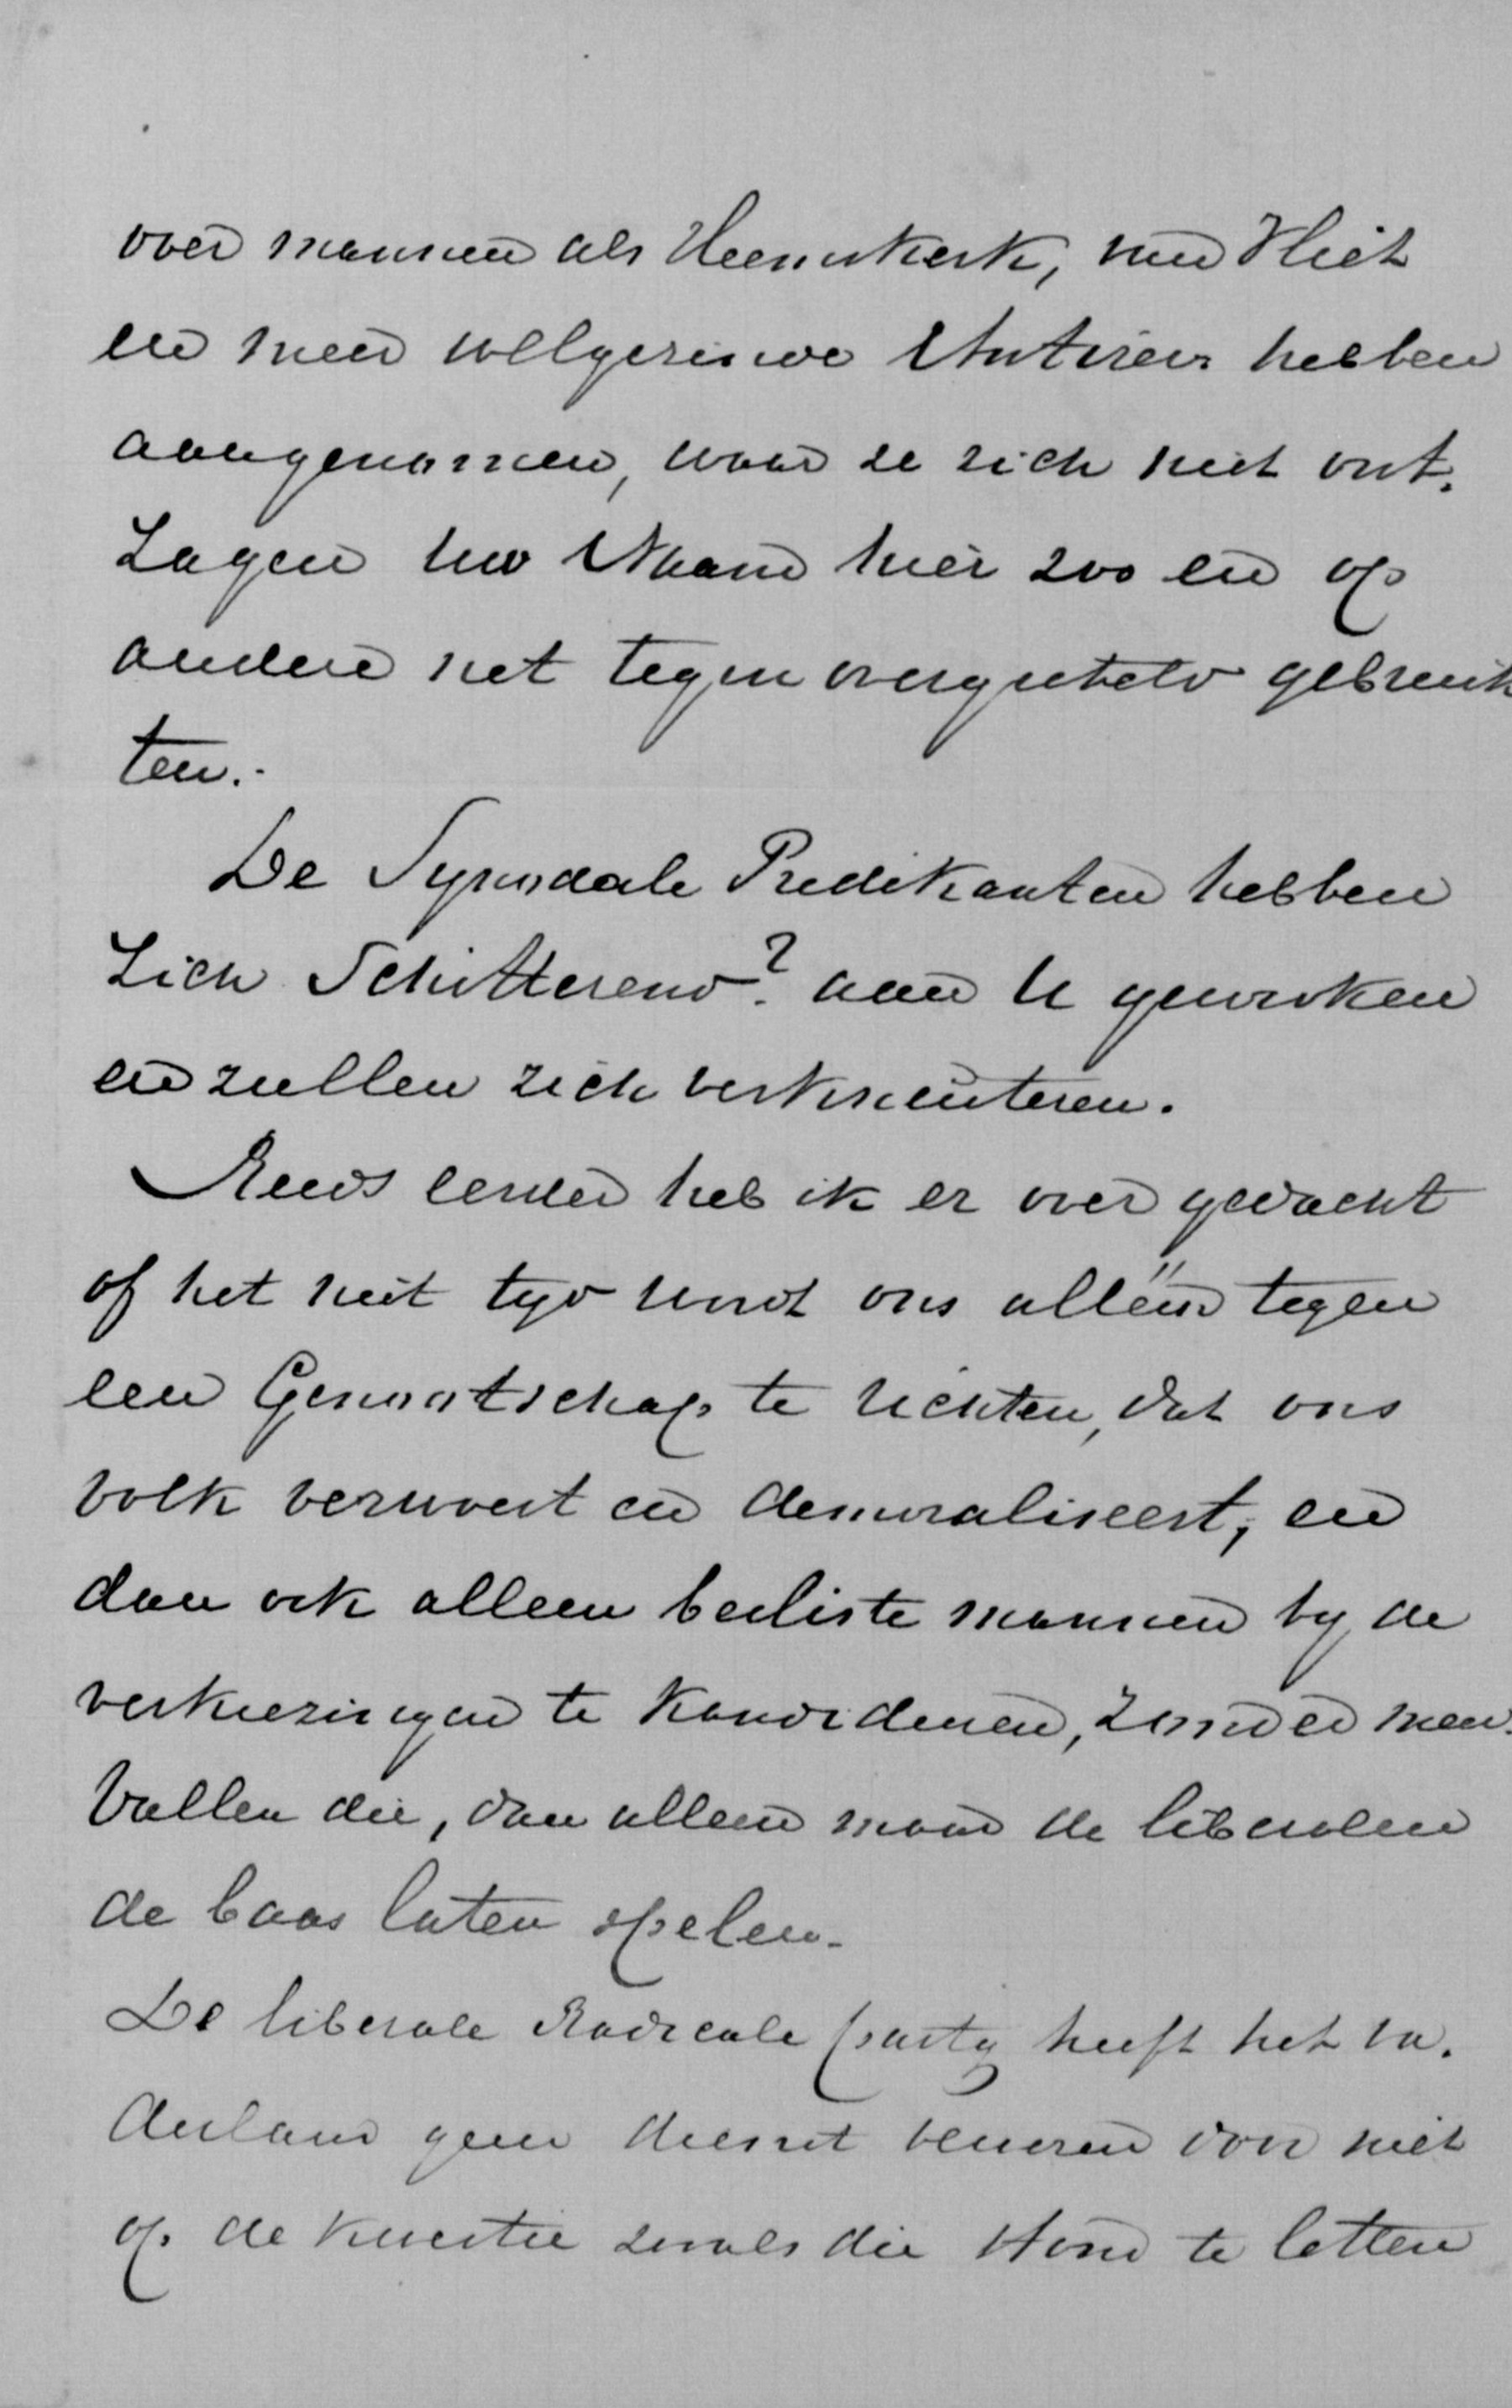 over mannen als Heemskerk, van Vliet
en meer welgezinde Antirev. hebben
aangenomen, waar ze zich niet ont-
zagen uw Naam hier zoo en op
andere net tegenovergesteld gebruik
ten.-
De Synodale Predikanten hebben
zich Schitterend? aan U gewroken
en zullen zich verkneuteren.
Reeds eerder heb ik er over gedacht
of het niet tyd wordt ons alléén tegen
een Genootschap te richten, dat ons
volk verwoest en demoraliseert, en
dan ook alleen besliste mannen by de
verkiezingen te kandideren, zonder mee-
vallen die, dan alleen maar de liberalen
de baas laten spelen.
De liberale Radicale party heeft het va-
derland geen dienst bewezen door niet
op de kwestie zooals die stond te letten